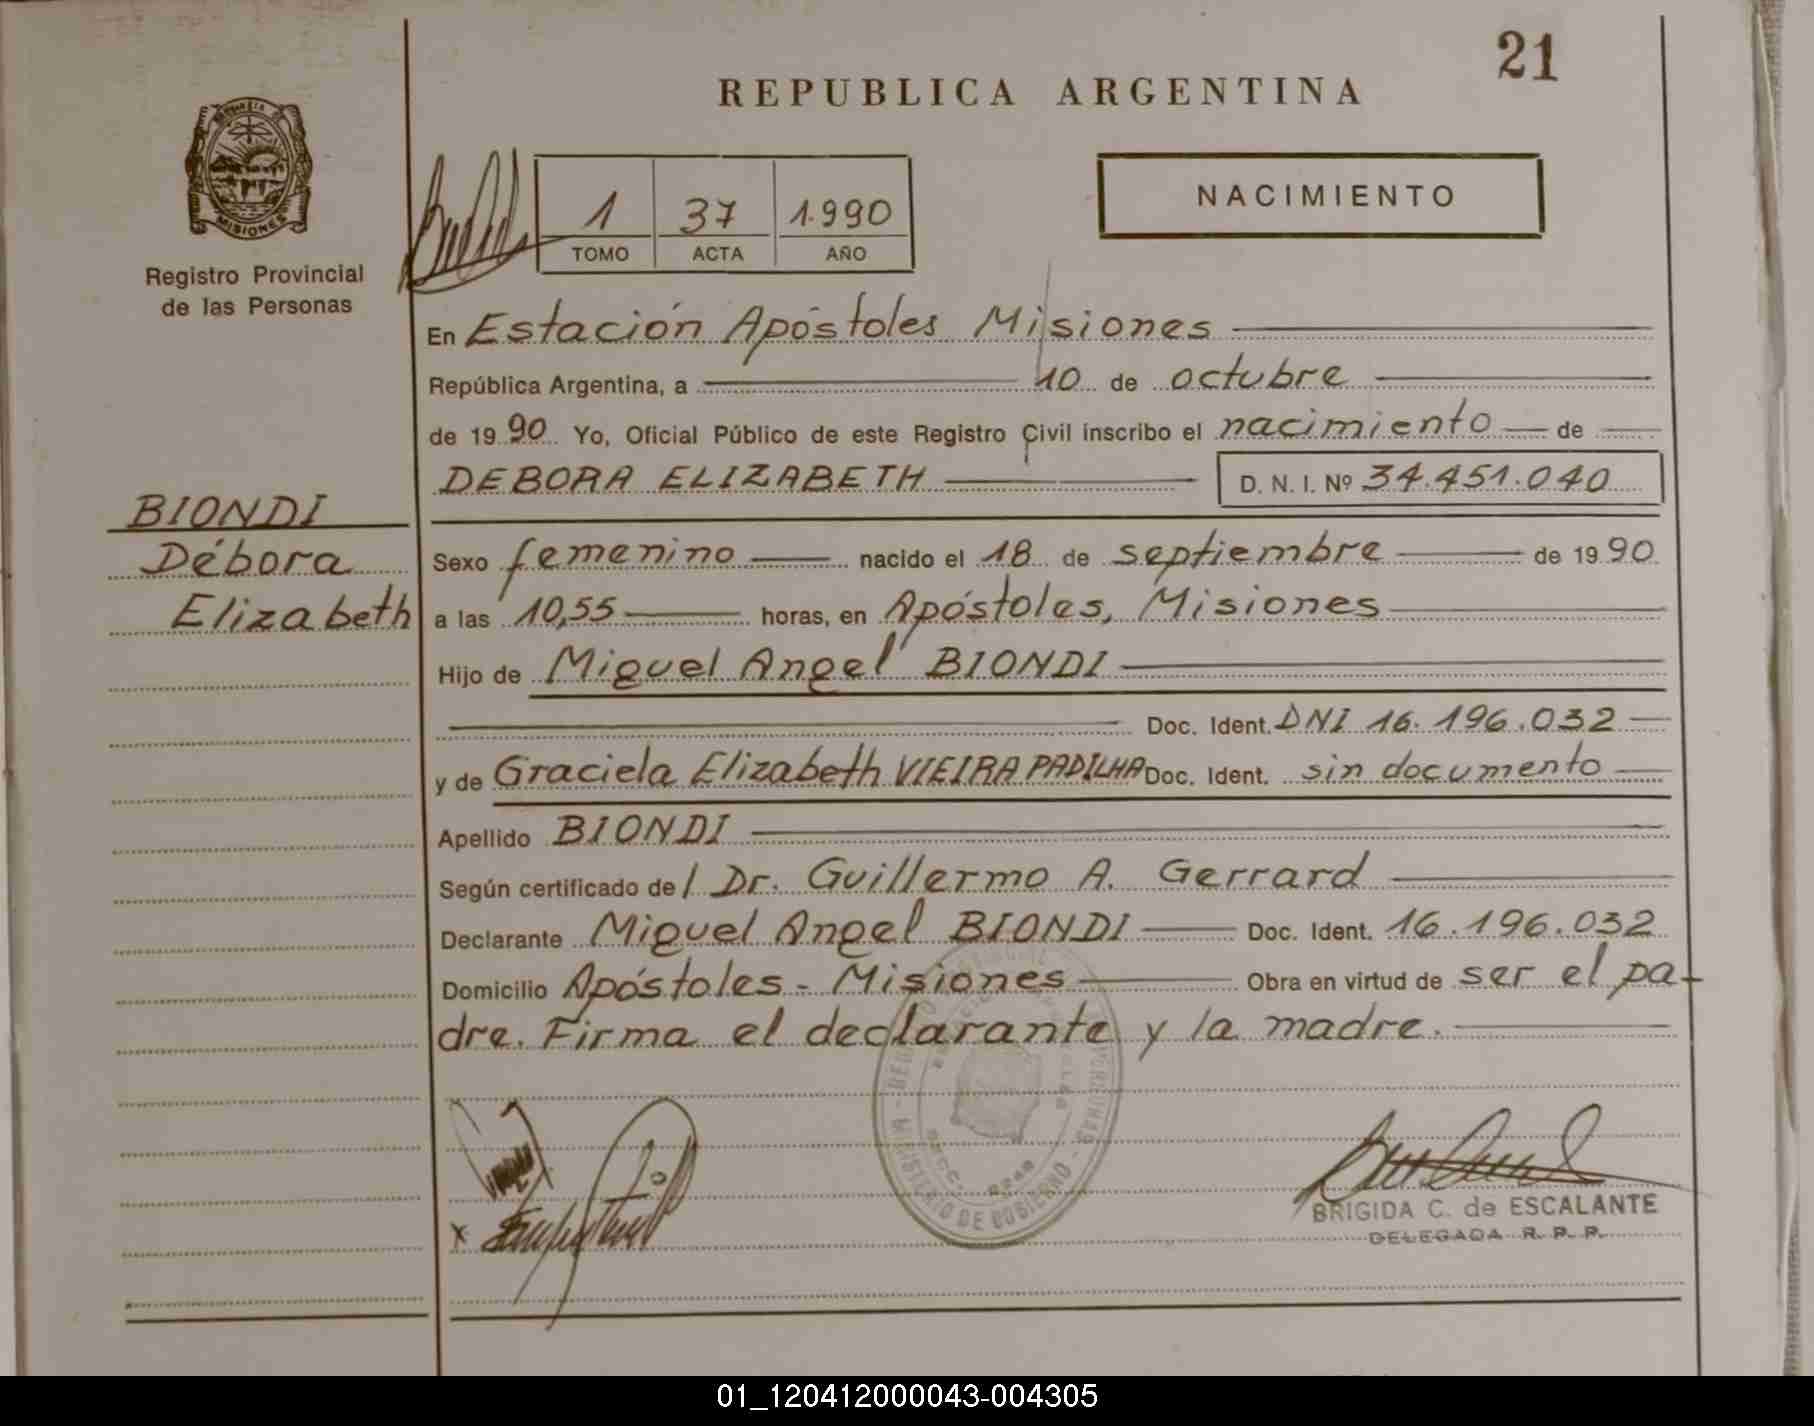 21
REPUBLICA ARGENTINA
MISIONES
Registro Provincial
de las Personas
1 37 1.990
TOMO ACTA AÑO
NACIMIENTO
En Estación Apóstoles Misiones
República Argentina, a 10 de octubre
de 1990 Yo, Oficial Público de este Registro Civil inscribo el nacimiento de
DEBORA ELIZABETH D. N. I. Nº 34.451.040
BIONDI
Débora
Elizabeth
Sexo femenino nacido el 18 de septiembre de 1990
a las 10,55 horas, en Apóstoles, Misiones
Hijo de Miguel Angel BIONDI
Doc. Ident. DNI 16.196.032
y de Graciela Elizabeth VIEIRA PADILHA Doc. Ident. sin documento
Apellido BIONDI
Según certificado de/ Dr. Guillermo A. Gerrard
Declarante Miguel Angel BIONDI Doc. Ident. 16.196.032
Domicilio Apóstoles - Misiones Obra en virtud de ser el pa-
dre. Firma el declarante y la madre.
MINISTERIO DE GOBIERNO
BRIGIDA C. de ESCALANTE
DELEGADA R. P. P.
01_120412000043-004305